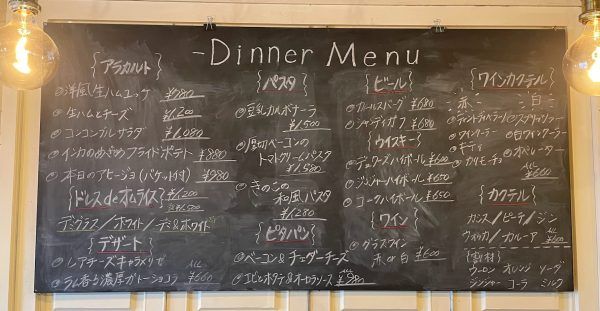 -Dinner Menu
{アラカルト}
◎洋風生ハムユッケ ¥980
◎生ハムとチーズ ¥1,200
◎コンコンブルサラダ ¥1,080
◎インカのめざめフライドポテト ¥880
◎本日のアヒージョ(バケット付) ¥980
{ドレスdeオムライス} ¥1,200
デミグラス/ホワイト/デミ&ホワイト
{デザート}
◎レアチーズキャラメリゼ
◎ラム香る濃厚ガトーショコラ ALL ¥660
{パスタ}
◎豆乳カルボナーラ
¥1,500
◎厚切ベーコンの
トマトクリームパスタ
¥1,580
◎きのこの
和風パスタ
¥1,280
{ピタパン}
◎ベーコン&チェダーチーズ
◎エビとホタテ&オーロラソース ALL ¥980
{ビール}
◎カールスバーグ ¥680
◎シャンディガフ ¥680
{ウイスキー}
◎デュワーズハイボール ¥600
◎ジンジャーハイボール ¥650
◎コークハイボール ¥650
{ワイン}
◎グラスワイン
赤or白 ¥600
{ワインカクテル}
赤 白
◎ワインクーラー ◎白ワインクーラー
◎キティ ◎オペレーター
◎カリモーチョ ALL ¥660
{カクテル}
カシス/ピーチ/ジン
ウォッカ/カルーア ALL
{割材}
ウーロン オレンジ ソーダ
ジンジャー コーラ ミルク